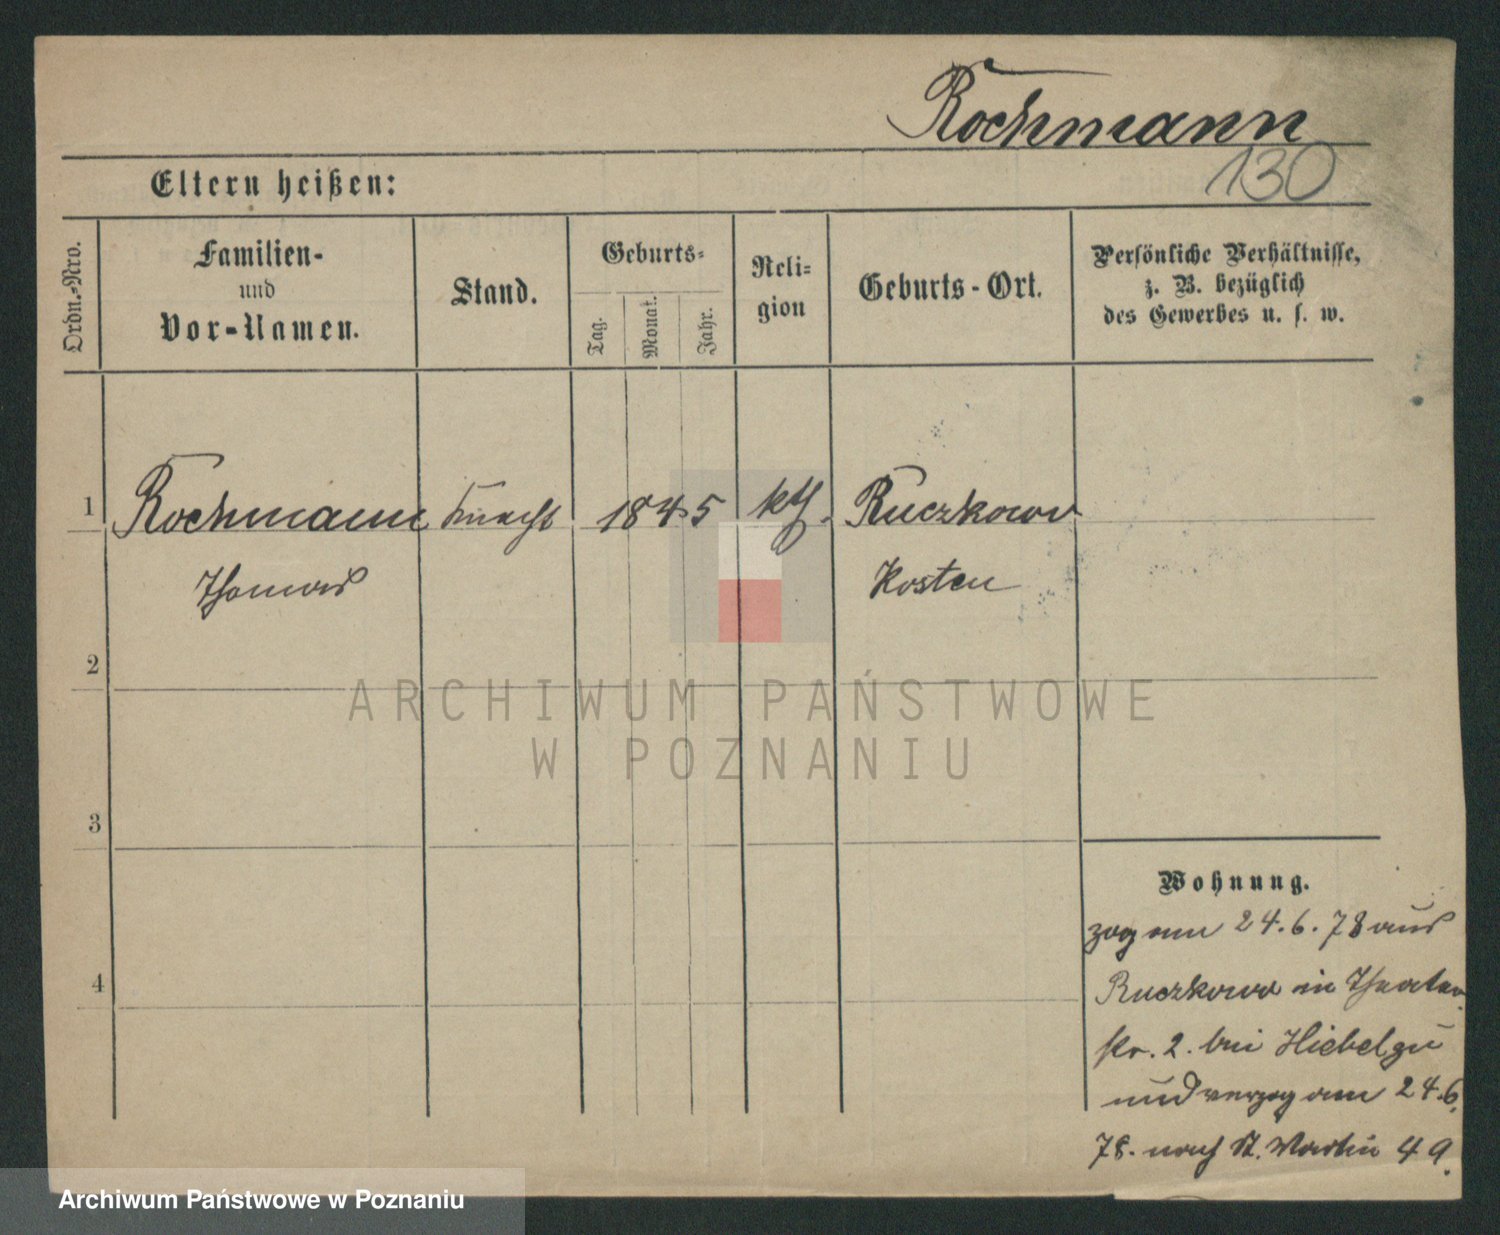 Rochmann
130
Eltern heißen:
Ordn.-Nro.
Familien-
und
Vor-Namen.
Stand.
Geburts-
Tag.
Monat.
Jahr.
Reli-
gion
Geburts-Ort.
Persönliche Verhältnisse,
z. B. bezüglich
des Gewerbes u. s. w.
1
Rochmann
Knecht
1845
kth.
Ruczkowo
Thomas
Kosten
2
3
4
Wohnung.
zog am 24.6.78 aus
Ruczkowo in Theater
str. 2. bei Hiebel zu
und verzog am 24.6.
78. nach St. Martin 49.
ARCHIWUM PAŃSTWOWE
W POZNANIU
Archiwum Państwowe w Poznaniu